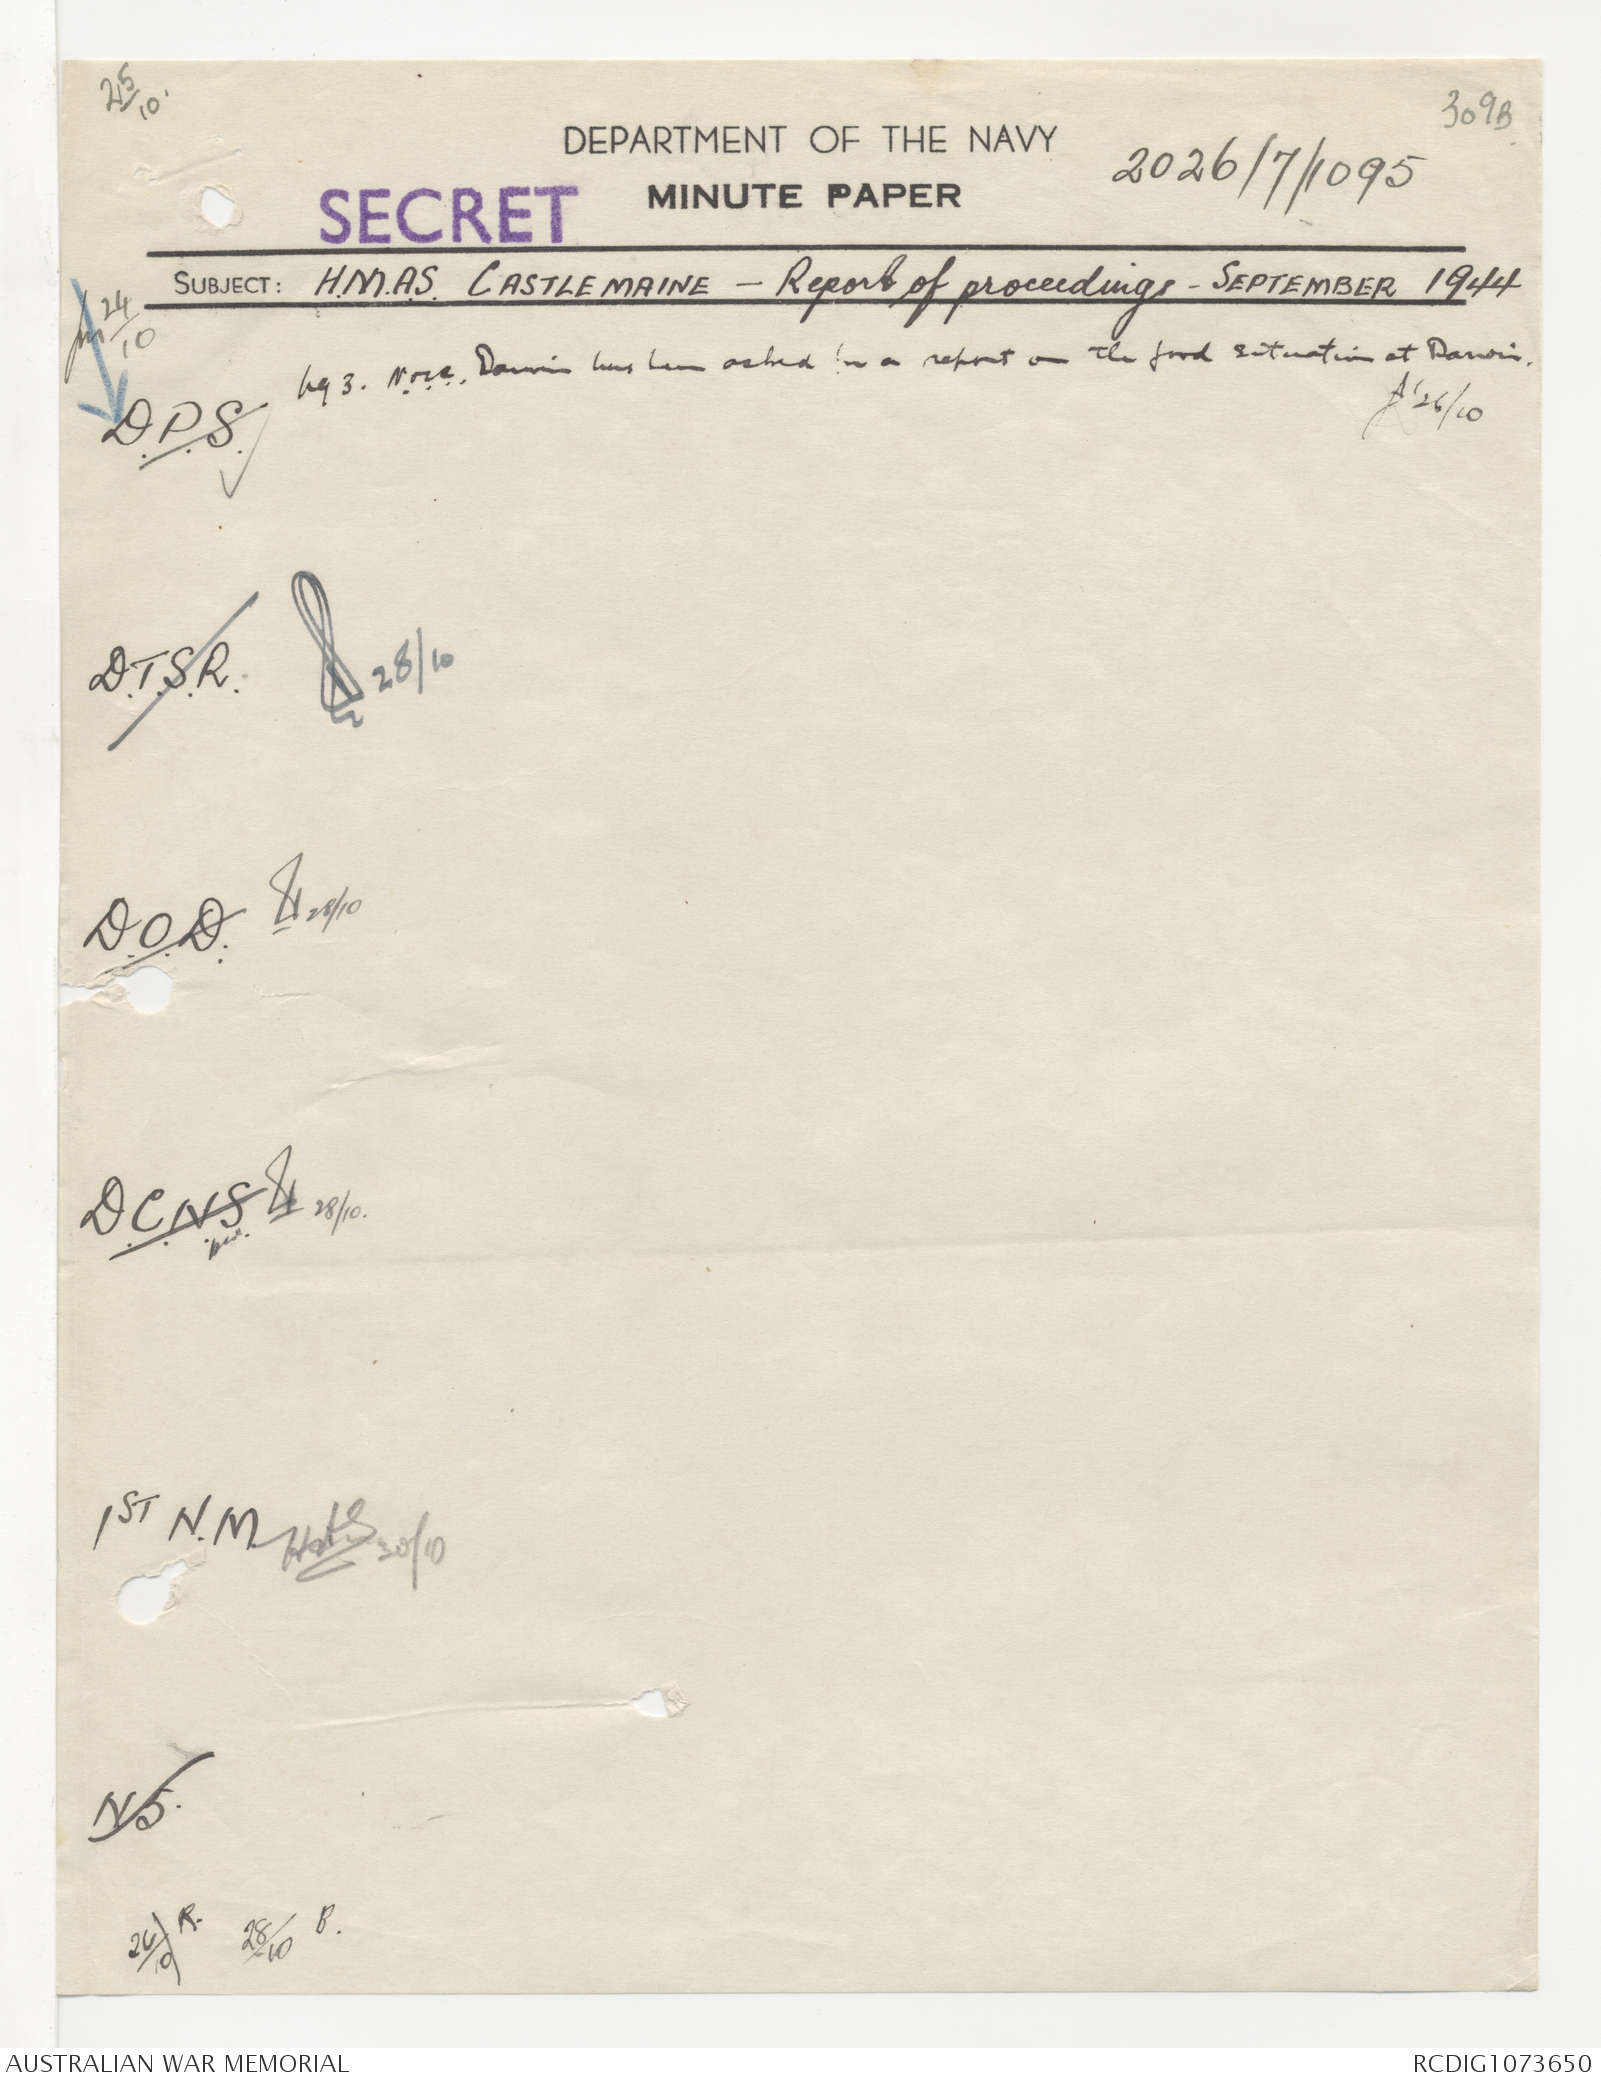 25/10.
309B
DEPARTMENT OF THE NAVY
2026/7/1095
SECRET
MINUTE PAPER
SUBJECT: H.M.A.S. CASTLEMAINE - Report of proceedings - SEPTEMBER 1944
24/10
pg 3. N.O.I.C. Darwin has been asked for a report on the food situation at Darwin.
26/10
D.P.S.
D.T.S.R. 28/10
D.O.D. 28/10
D.C.N.S. 28/10.
1ST N.M. 30/10
N5.
26/10 R. 28/10 B.
AUSTRALIAN WAR MEMORIAL
RCDIG1073650